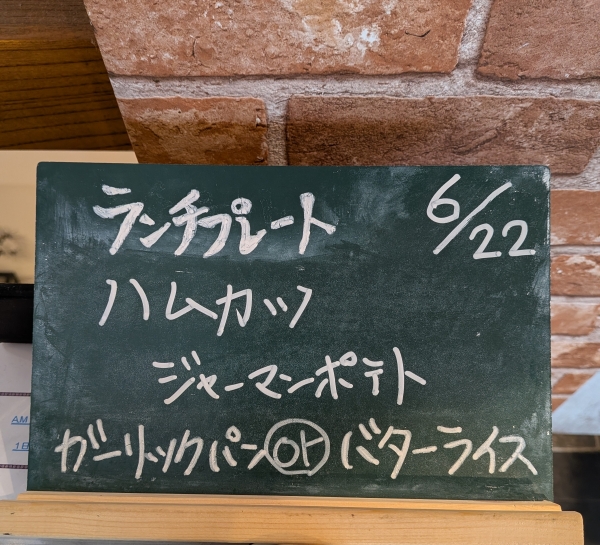 ランチプレート 6/22
ハムカツ
ジャーマンポテト
ガーリックパン or バターライス
AM
1日